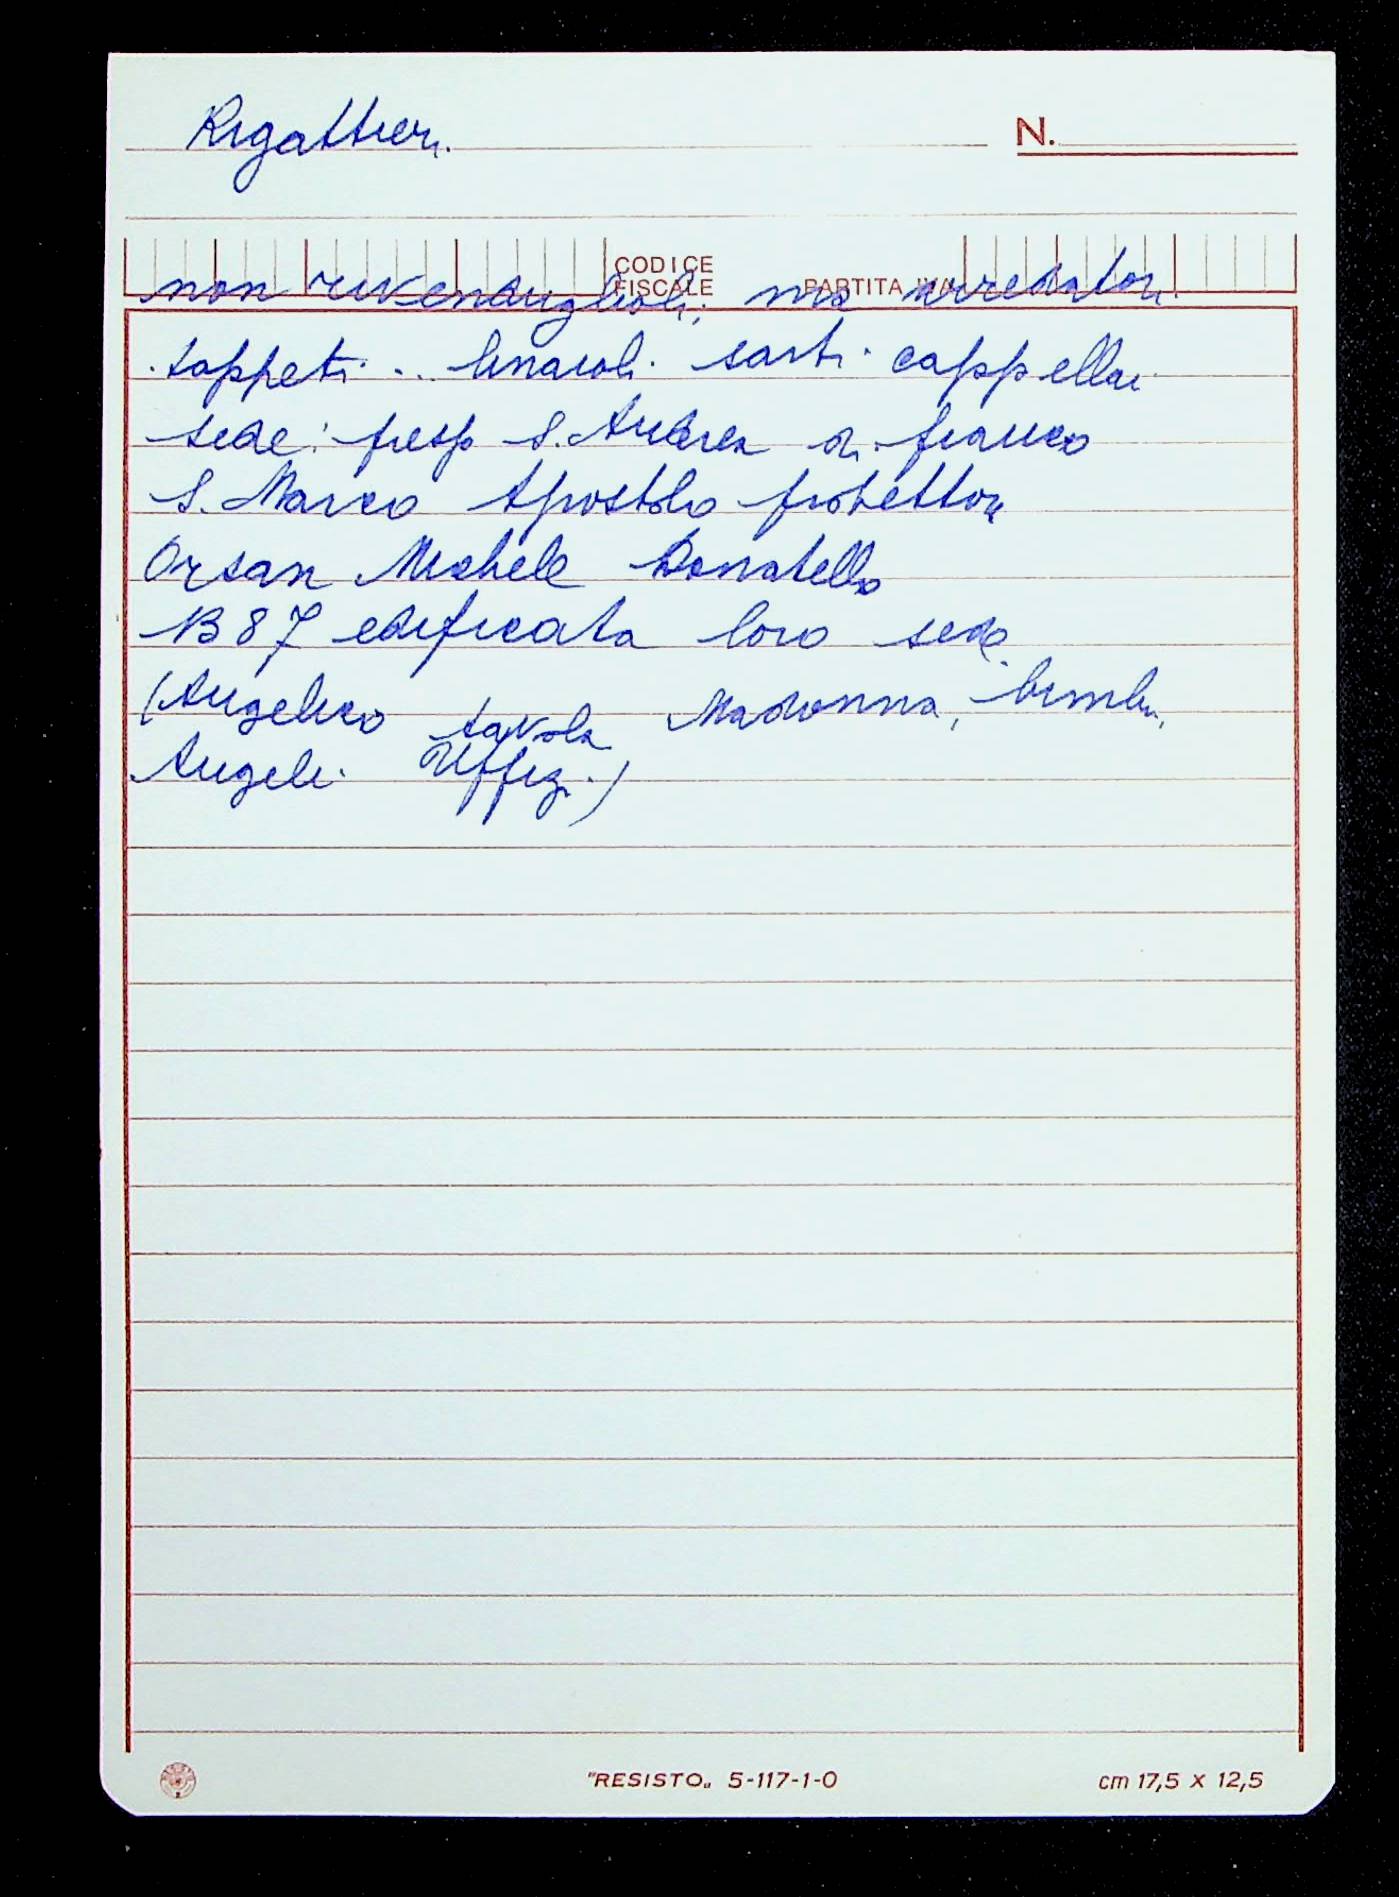 Rigattieri.
N.
CODICE
FISCALE
PARTITA IVA
non rivenduglioli, ma arredatori
tappeti .. linaioli. sarti. cappellai
sede: presso S. Andrea
S. Marco Apostolo protettore
Orsan Michele Donatello
edificata loro sede
(Angelico tavola Madonna, bimbo,
Angeli. Uffizi.)
"RESISTO„ 5-117-1-0
cm 17,5 x 12,5